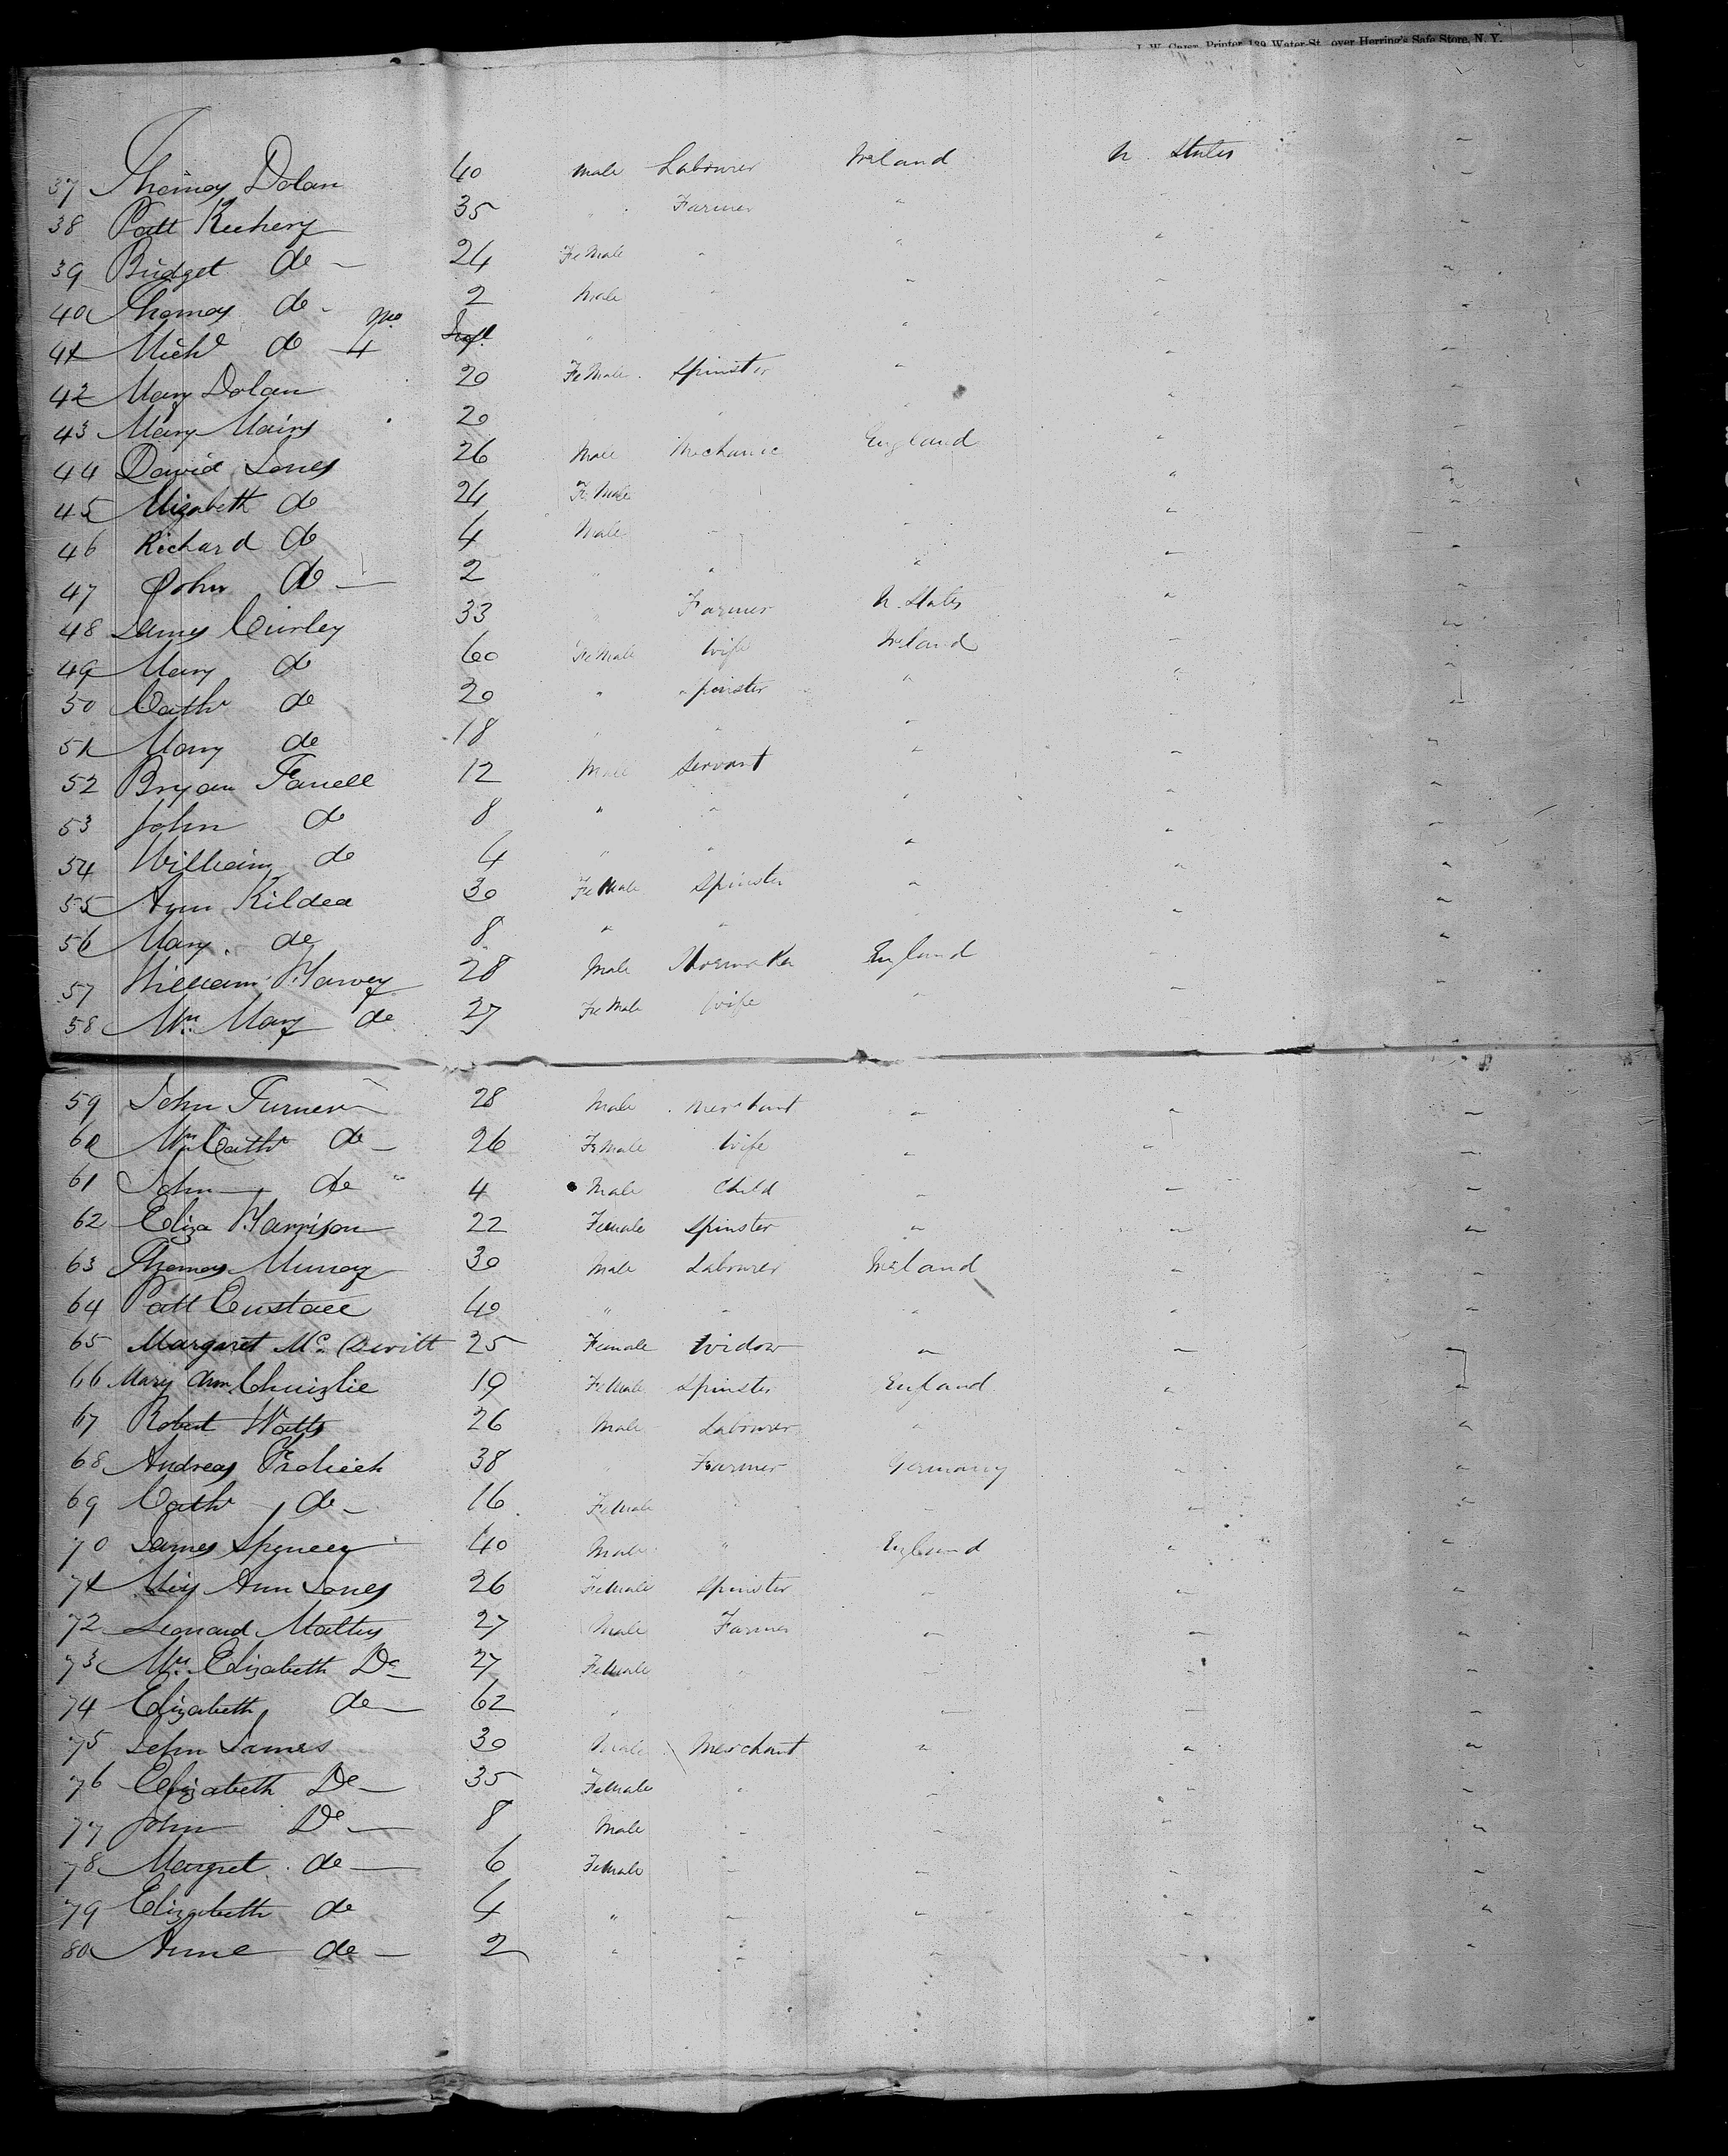 J. W. Printer, 139 Water-St. over Herring's Safe Store, N. Y.
37 Thomas Dolan 40 Male Labourer Ireland U. States
38 Patt 35 " Farmer "
39 Bridget do — 24 Female " " "
40 Thomas do - 2 Male " " "
41 Michl do 4 mo Inft " " " "
42 Mary Dolan 20 Female Spinster " "
43 Mary 20 " " " "
44 David Jones 26 Male Mechanic England "
45 Elizabeth do 24 Female " "
46 Richard do 4 Male " " "
47 John do — 2 " " " "
48 James Curley 33 " Farmer U. States "
49 Mary do 60 Female Wife Ireland "
50 Cathe do 20 " Spinster " "
51 Mary do 18 " " " "
52 Bryan Farrell 12 Male Servant " "
53 John do 8 " " " "
54 William do 4 " " " "
55 Ann Kildea 30 Female Spinster " "
56 Mary do 8 " " " "
57 William Harvey 28 Male Shoemaker England "
58 Mrs. Mary do 27 Female Wife " "
59 John Turner 28 Male Merchant " "
60 Mrs Cathe do — 26 Female Wife " "
61 John do " 4 Male Child " "
62 Eliza Harrison 22 Female Spinster " "
63 Thomas Murray 30 Male Labourer Ireland "
64 Patt Eustace 40 " " " "
65 Margaret Mc. Devitt 25 Female Widow " "
66 Mary Ann Christie 19 Female Spinster England "
67 Robert Watts 26 Male Labourer " "
68 Andreas 38 " Farmer Germany "
69 Cathe do — 16 Female " " "
70 James 40 Male " England "
71 Miss Ann Jones 26 Female Spinster " "
72 Leonard 27 Male Farmer " "
73 Mrs. Elizabeth Do 27 Female " " "
74 Elizabeth do — 62 " " " "
75 John James 30 Male Merchant " "
76 Elizabeth Do — 35 Female " " "
77 John Do — 8 Male " " "
78 Margret do — 6 Female " " "
79 Elizabeth do 4 " " " "
80 Anne do — 2 " " " "